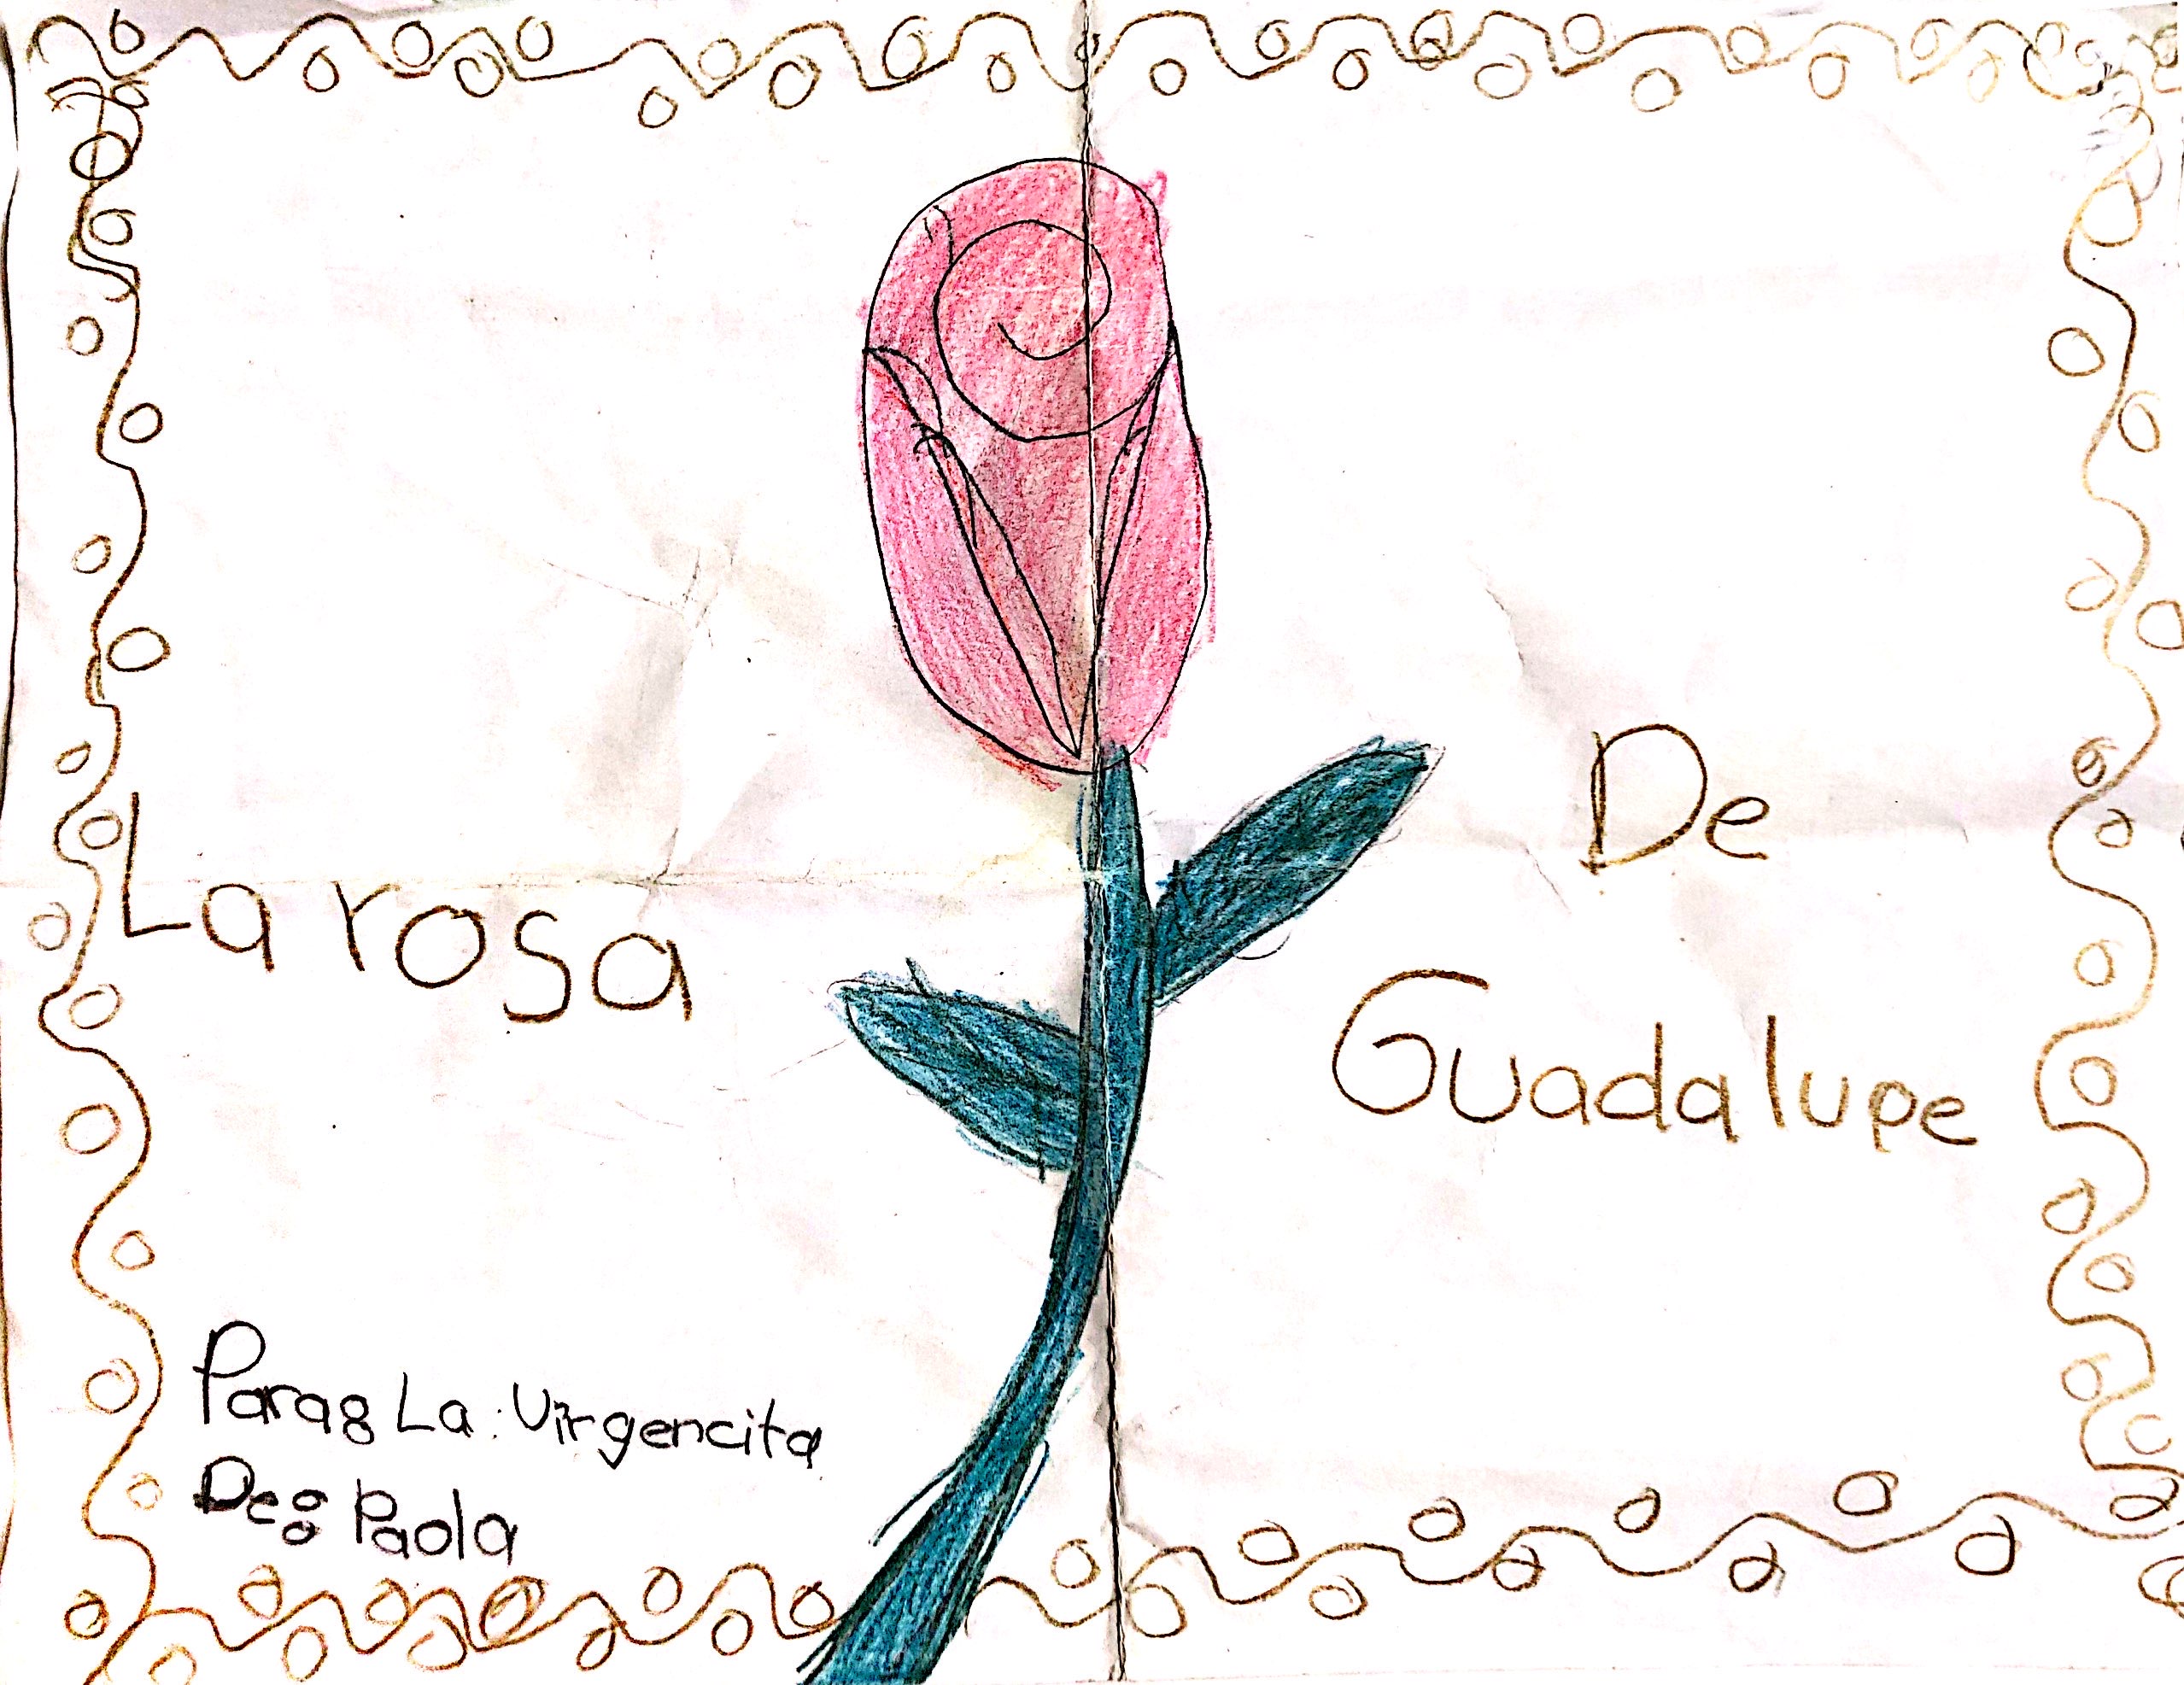 La rosa
De
Guadalupe
Para: La: Virgencita
De: Paola